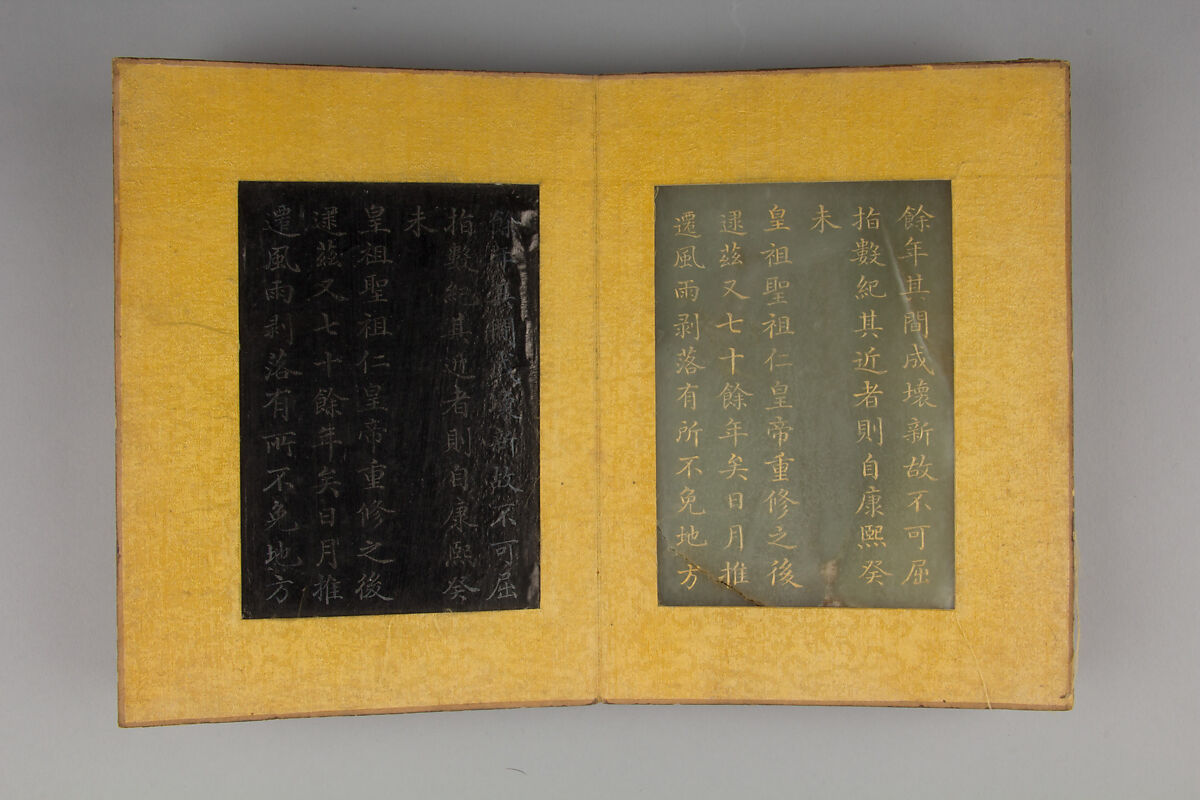 餘年其間成壞新故不可屈
指數紀其近者則自康熙癸
未
皇祖聖祖仁皇帝重修之後
逮茲又七十餘年矣日月推
遷風雨剥落有所不免地方
餘年其間壞新故不可屈
指數紀其近者則自康熙癸
未
皇祖聖祖仁皇帝重修之後
逮茲又七十餘年矣日月推
遷風雨剥落有所不免地方